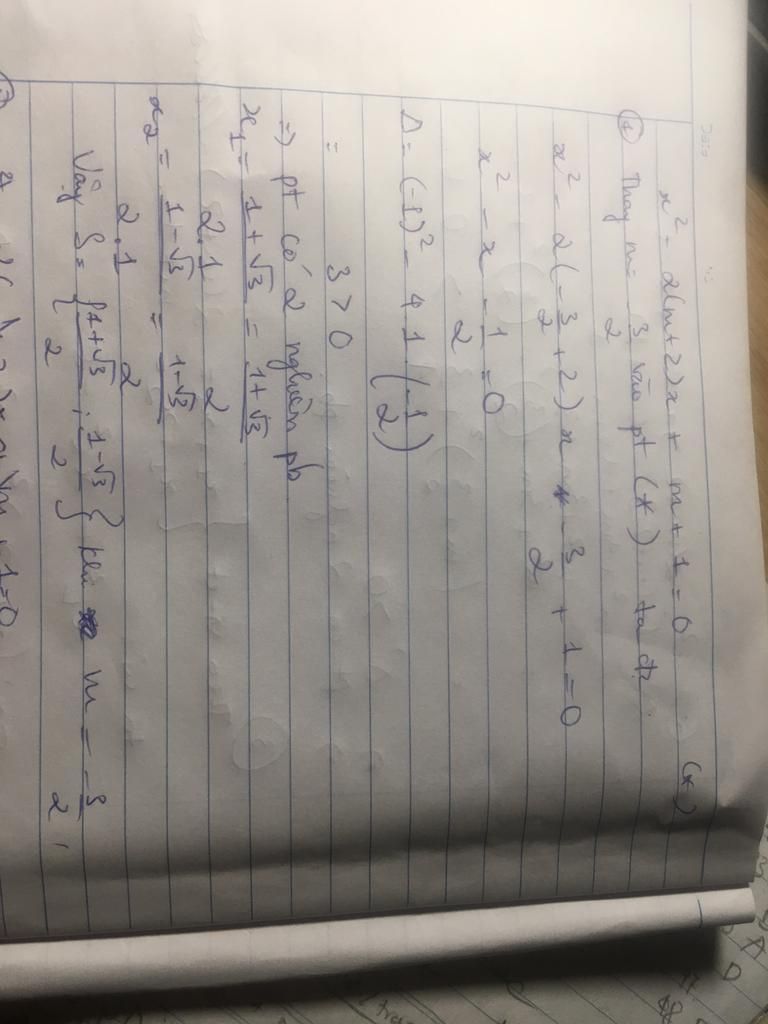 x² - 2(m+2)x + m + 1 = 0 (*)
① Thay m = -3/2 vào pt (*) ta đc
x² - 2(-3/2 + 2)x - 3/2 + 1 = 0
x² - x - 1/2 = 0
Δ = (-1)² - 4 1 (-1/2)
= 3 > 0
=> pt có 2 nghiệm pb
x₁ = 1+√3/2.1 = 1+√3/2
x₂ = 1-√3/2.1 = 1-√3/2
Vậy S = {1+√3/2 ; 1-√3/2} khi m = -3/2